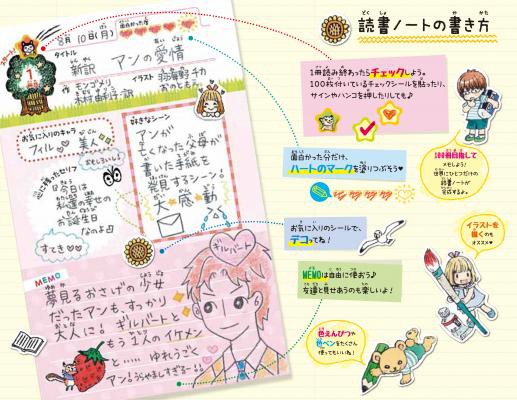 読書ノートの書き方
スタート
1
8月10日(月)
面白かった度
タイトル
新訳 アンの愛情
作 モンゴメリ
木村由利子訳
イラスト 羽海野チカ
おのともえ
お気に入りのキャラ
フィル 美人
おもしろいし!
心に残ったセリフ
今日は
私達の幸せの
お誕生日
なのよ
すてき
好きなシーン
アンが
亡くなった父母が
書いた手紙を
発見するシーン。
大感動
MEMO
夢見るおさげの少女
だったアンも、すっかり
大人に!ギルバートと
もう1人のイケメン
と……ゆれうごく
アン!うらやましすぎる…
ギルバート
1冊読み終わったらチェックしよう。
100枚付いているチェックシールを貼ったり、
サインやハンコを押したりしても♪
面白かった分だけ、
ハートのマークを塗りつぶそう♥
お気に入りのシールで、
デコってね!
MEMOは自由に使おう♪
友達と見せあうのも楽しいよ!
100冊目指して
メモしよう!
世界にひとつだけの
読書ノートが
完成するよ。
イラストを
描くのも
オススメ♥
色えんぴつや
色ペンをたくさん
使ってもいいね!